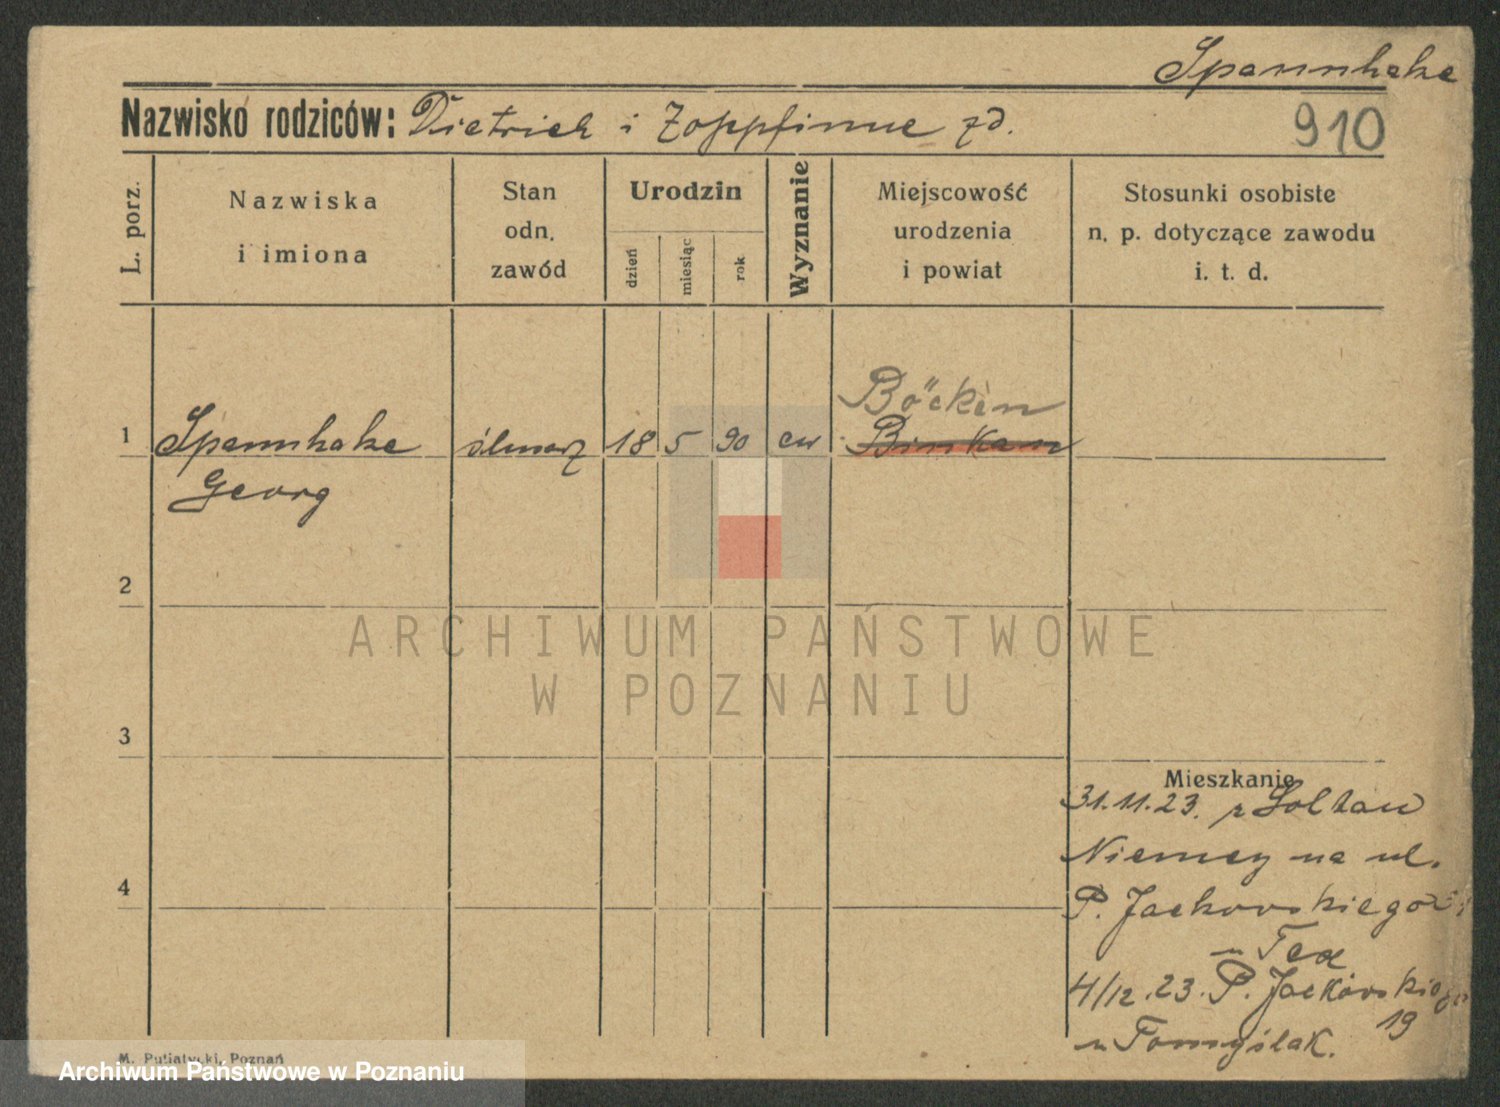 Spannhake
Nazwisko rodziców: Dietrich i Zoppfinne zd.
910
L. porz.
Nazwiska
i imiona
Stan
odn.
zawód
Urodzin
dzień
miesiąc
rok
Wyznanie
Miejscowość
urodzenia
i powiat
Stosunki osobiste
n. p. dotyczące zawodu
i. t. d.
Böcken
1 Spannhake ślusarz 18 5 90 ew Binkan
Georg
2
3
4
Mieszkanie
31.11.23. z Soltau
Niemcy na ul.
P. Jackowskiego
u
4/12.23. P. Jackowskiego
19
u Tomyślak.
M. Putiatycki, Poznań
ARCHIWUM PAŃSTWOWE
W POZNANIU
Archiwum Państwowe w Poznaniu